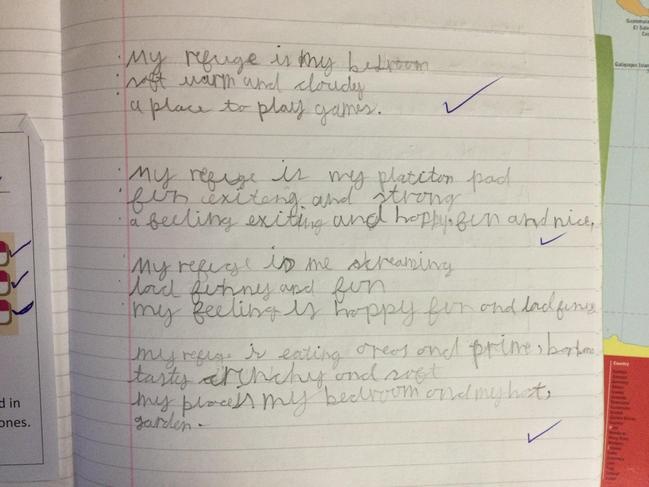 my refuge is my bedroom
soft warm and cloudy
a place to play games.
my refuge is my platiton pad
fun exiteng and strong
a feeling exiting and happy, fun and nice,
my refuge is me screaming
lord funny and fun
my feeling is happy fun and lord funne
my refuge is eating oreos and prime,
tasty crunchy and soft
my place is my bedroom and my hot,
garden.
d in
ones.
Guatemala
El Salv
Galapagos Islan
Country